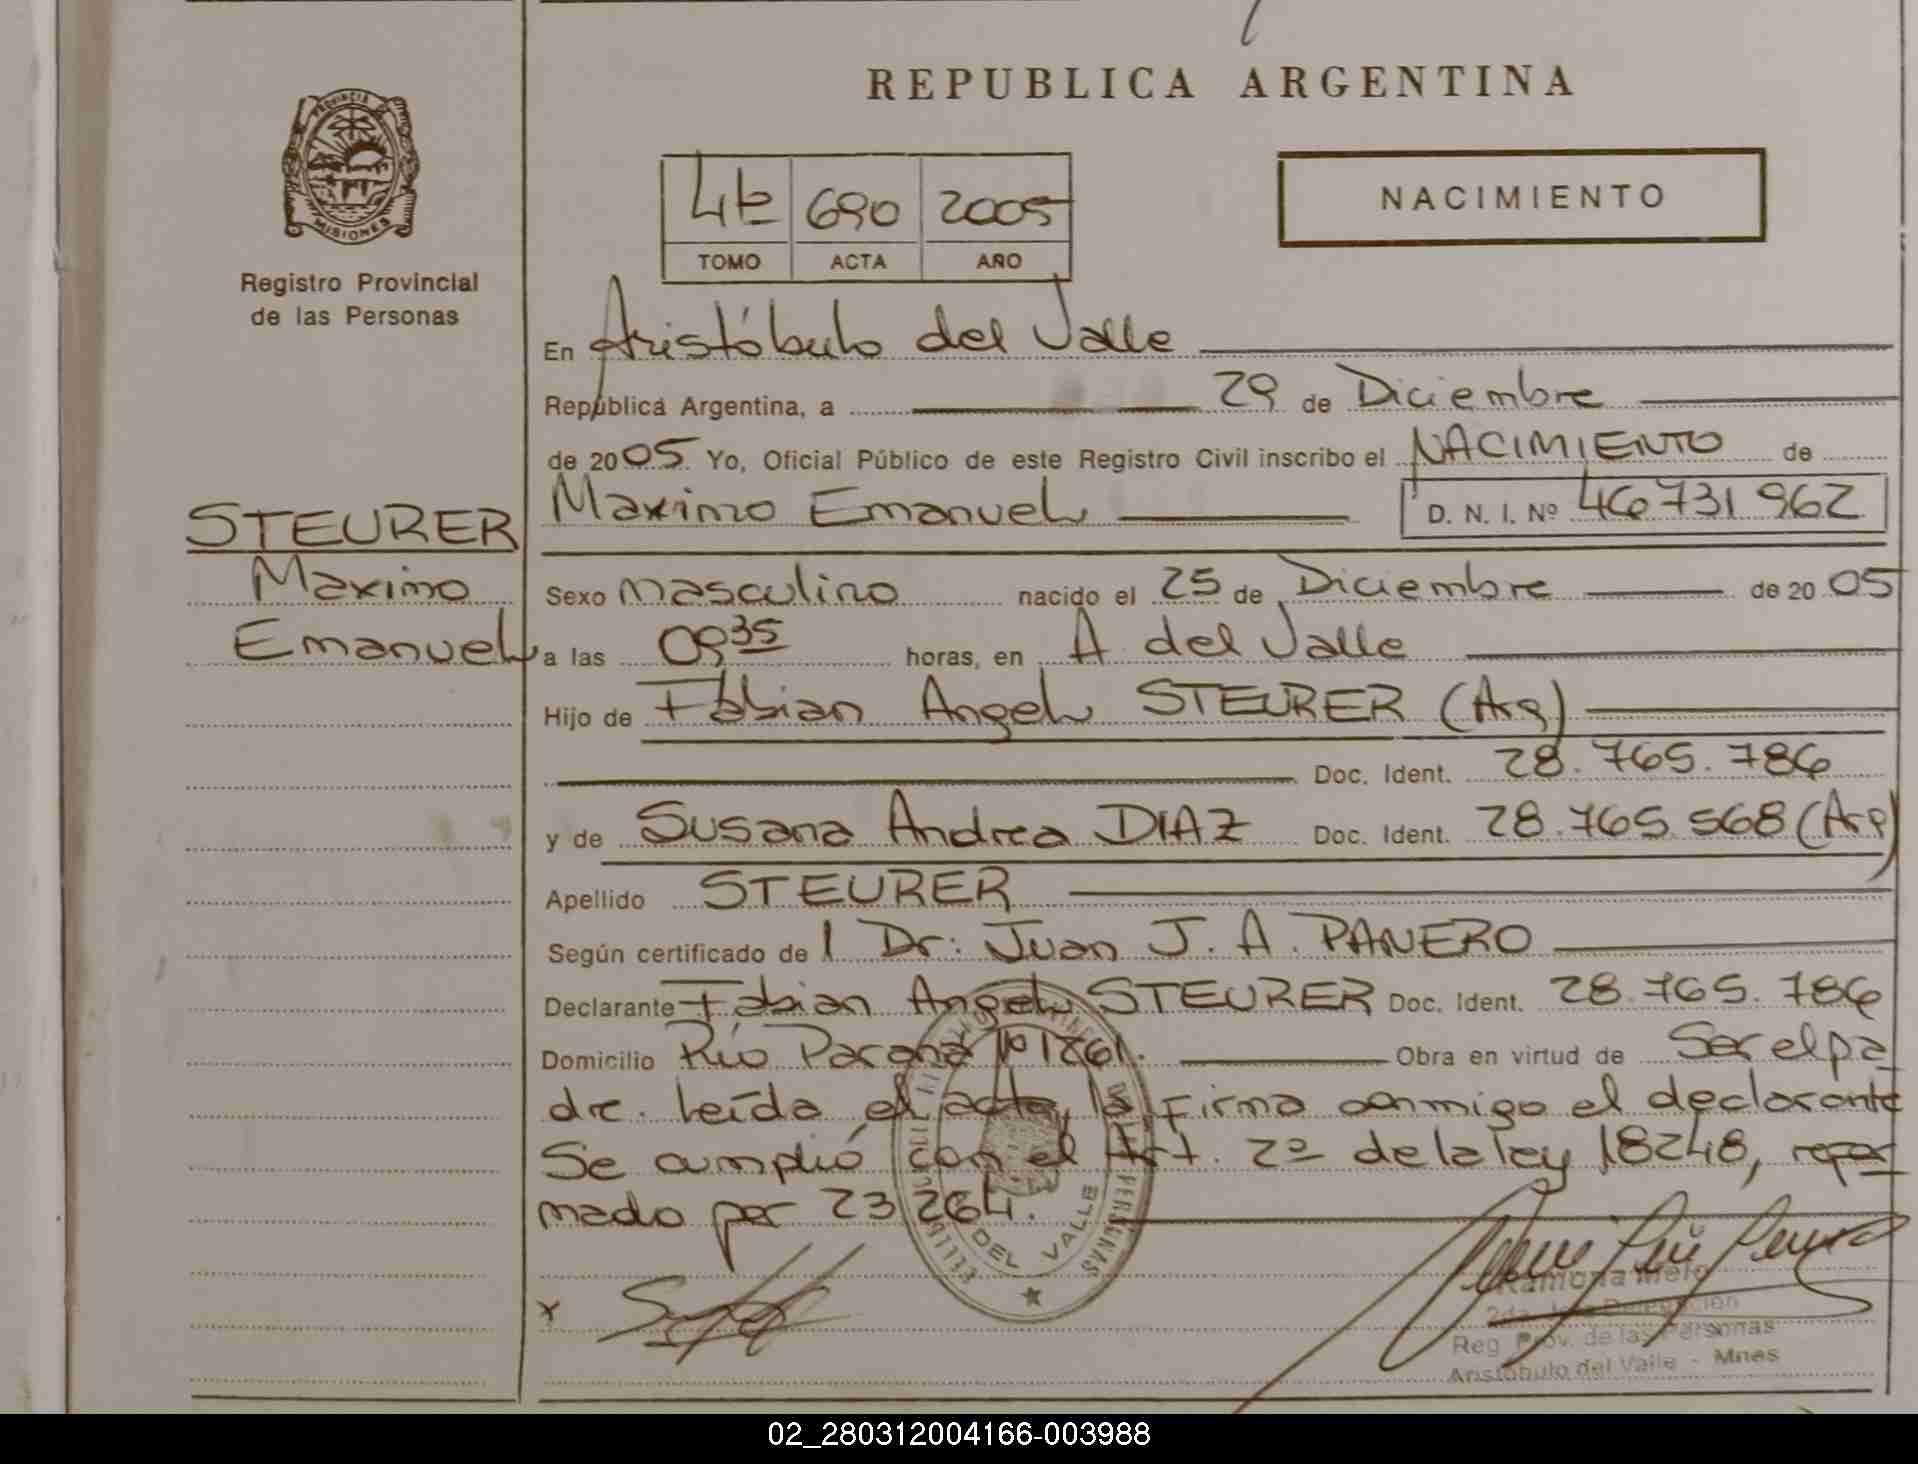 REPUBLICA ARGENTINA
PROVINCIA
MISIONES
Registro Provincial
de las Personas
690 2005
TOMO ACTA AÑO
NACIMIENTO
En Aristóbulo del Valle
República Argentina, a 29 de Diciembre
de 2005 Yo, Oficial Público de este Registro Civil inscribo el NACIMIENTO de
Maximo Emanuel D. N. I. Nº 46 731 962
STEURER
Maximo
Emanuel
Sexo masculino nacido el 25 de Diciembre de 2005
a las 09 35 horas, en A del Valle
Hijo de Fabian Angel STEURER (Arg)
Doc. Ident. 28.765.786
y de Susana Andrea DIAZ Doc. Ident. 28.765.568 (Arg)
Apellido STEURER
Según certificado de l Dr: Juan J. A. PANERO
Declarante Fabian Angel STEURER Doc. Ident. 28.765.786
Domicilio Río Paraná Nº 1861. Obra en virtud de Ser el pa
dre. Leída el acta, la firma conmigo el declarante
Se cumplió con el Art. 2º de la ley 18248, refor
mado por 23 264.
DEL VALLE
PERSONAS
x
Ramona Melo
2da. Jefe Delegación
Reg. Prov. de las Personas
Aristóbulo del Valle - Mnes
02_280312004166-003988